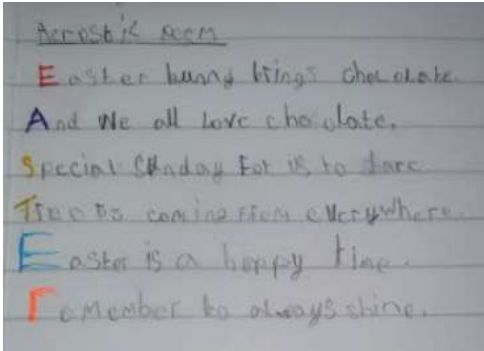 Acrostic poem
Easter bunny brings chocolate.
And We all Love chocolate.
Special Sunday For us to share
Treets coming From everywhere.
Easter is a happy time.
remember to always shine.